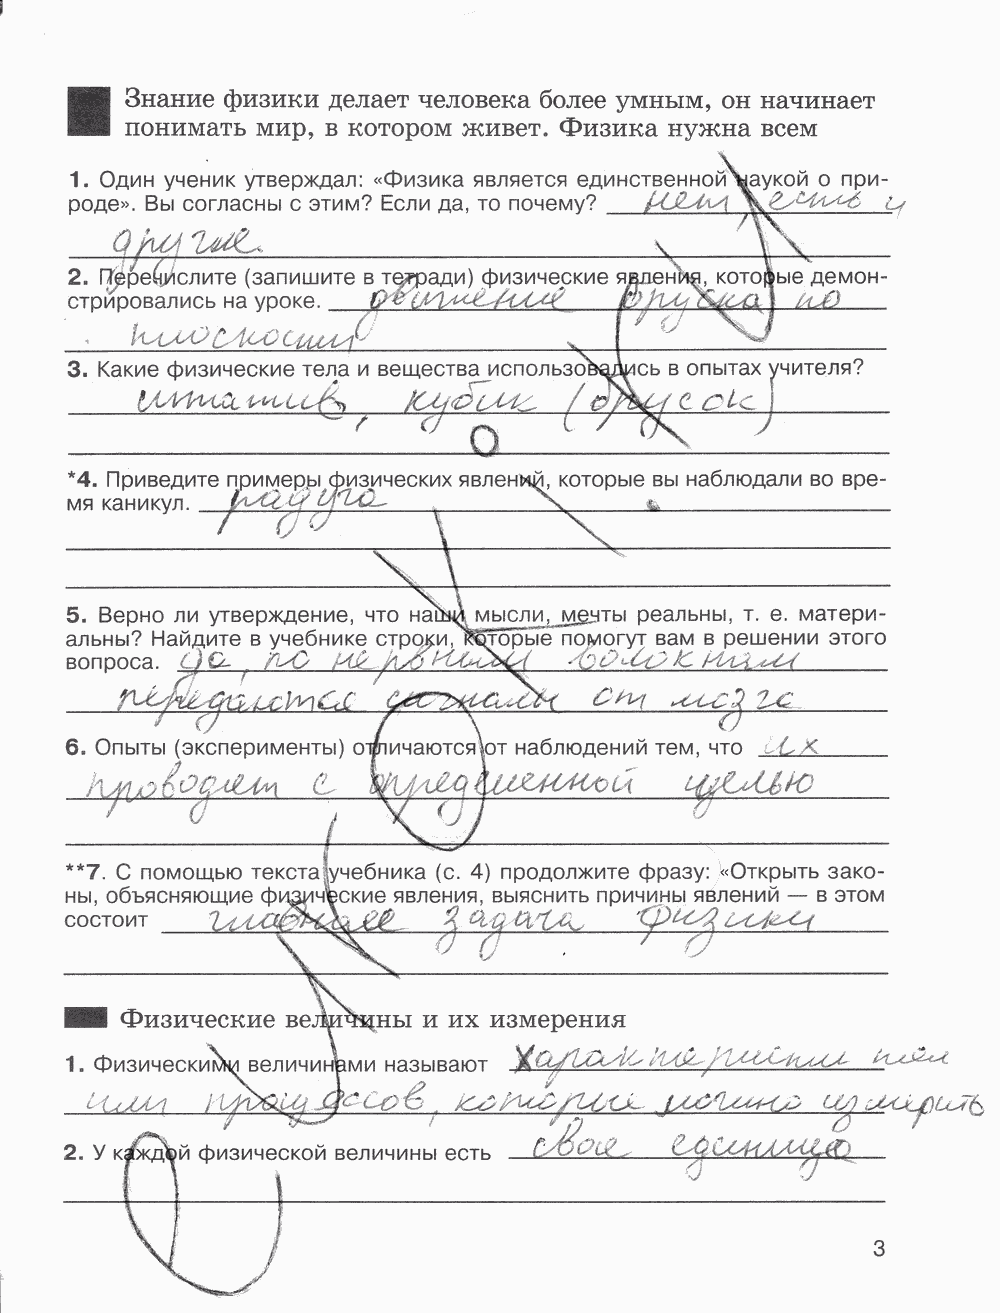 Знание физики делает человека более умным, он начинает
понимать мир, в котором живет. Физика нужна всем
1. Один ученик утверждал: «Физика является единственной наукой о при-
роде». Вы согласны с этим? Если да, то почему? нет, есть и
другие.
2. Перечислите (запишите в тетради) физические явления, которые демон-
стрировались на уроке. движение бруска по
плоскости
3. Какие физические тела и вещества использовались в опытах учителя?
штатив, кубик (брусок)
*4. Приведите примеры физических явлений, которые вы наблюдали во вре-
мя каникул. радуга
5. Верно ли утверждение, что наши мысли, мечты реальны, т. е. матери-
альны? Найдите в учебнике строки, которые помогут вам в решении этого
вопроса. да, по нервным волокнам
передаются сигналы от мозга
6. Опыты (эксперименты) отличаются от наблюдений тем, что их
проводят с определенной целью
**7. С помощью текста учебника (с. 4) продолжите фразу: «Открыть зако-
ны, объясняющие физические явления, выяснить причины явлений — в этом
состоит главная задача физики
Физические величины и их измерения
1. Физическими величинами называют характеристики тел
или процессов, которые можно измерить
2. У каждой физической величины есть своя единица
3